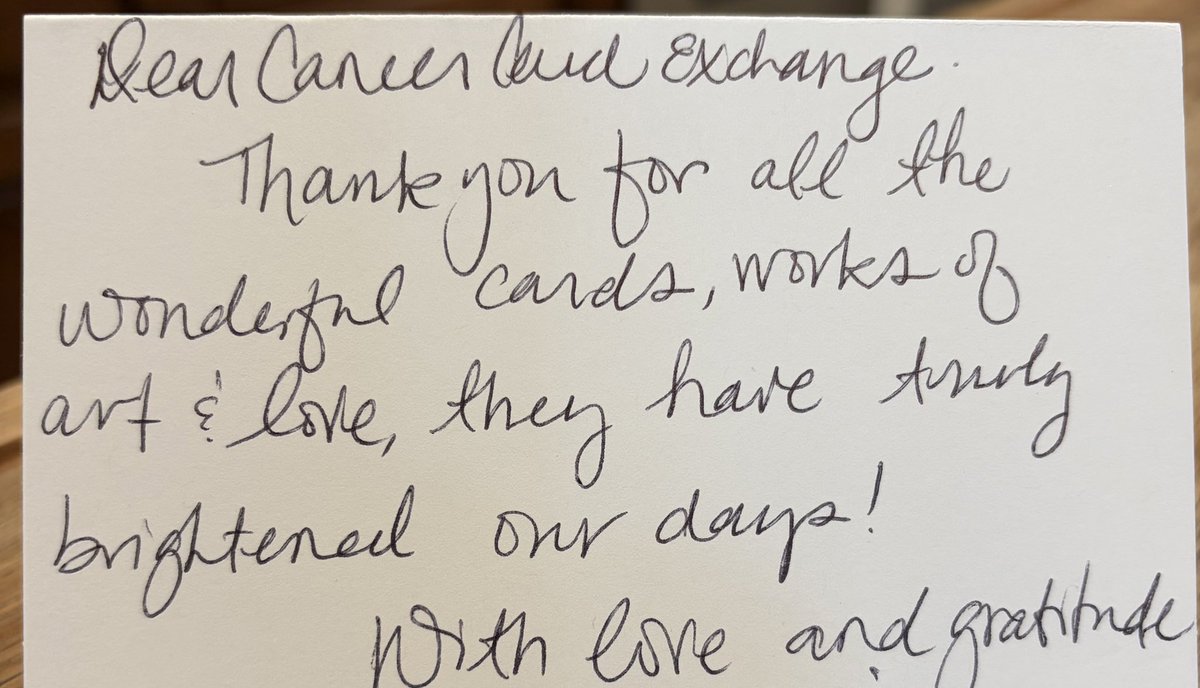 Dear Cancer Card Exchange.
Thank you for all the
wonderful cards, works of
art & love, they have truly
brightened our days!
With love and gratitude